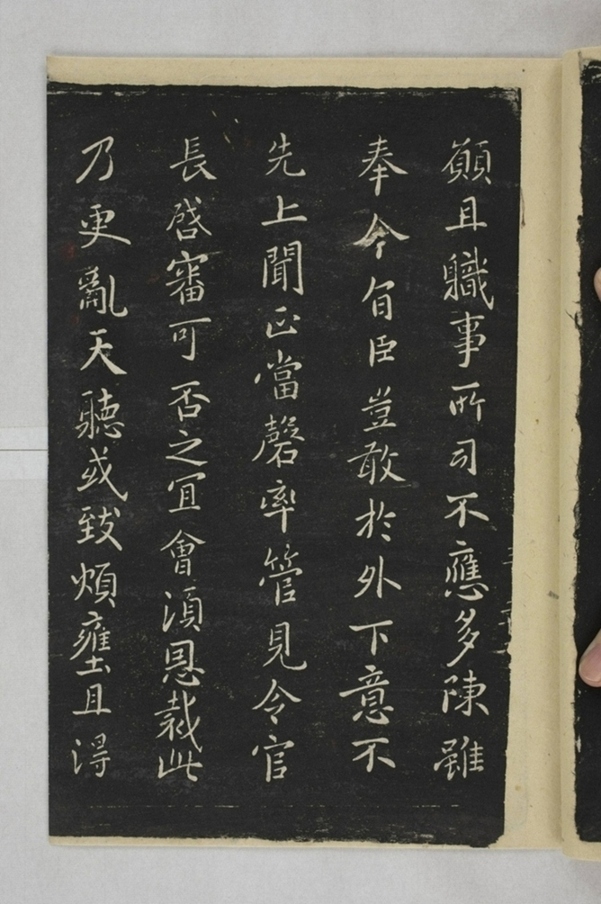 願且職事所司不應多陳雖
奉令旨臣豈敢於外下意不
先上聞正當罄率管見令官
長啓審可否之宜會須恩裁此
乃更亂天聽或致煩壅且得